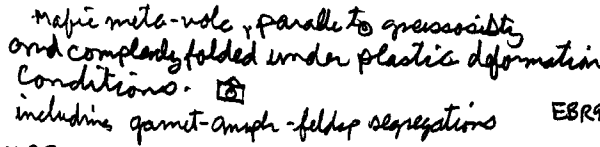 mafic meta-volc, parallel to gneissosity
and complexly folded under plastic deformation
conditions.
including garnet-amph-feldsp segregations EBR9